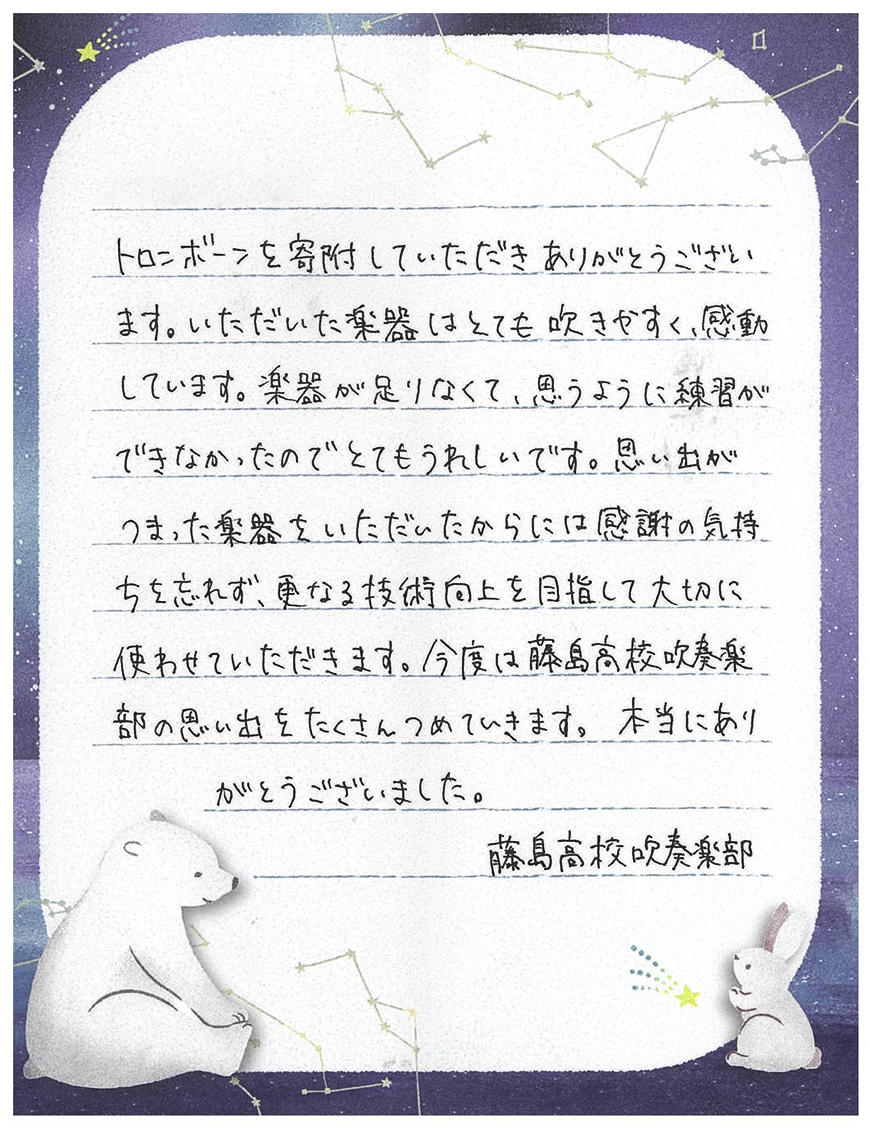 トロンボーンを寄附していただきありがとうござい
ます。いただいた楽器はとても吹きやすく、感動
しています。楽器が足りなくて、思うように練習が
できなかったのでとてもうれしいです。思い出が
つまった楽器をいただいたからには感謝の気持
ちを忘れず、更なる技術向上を目指して大切に
使わせていただきます。今度は藤島高校吹奏楽
部の思い出をたくさんつめていきます。本当にあり
がとうございました。
藤島高校吹奏楽部